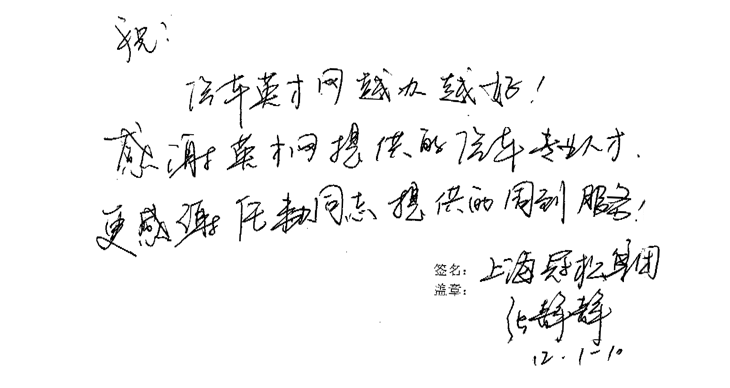 祝:
汽车英才网越办越好!
感谢英才网提供的汽车专业人才.
更感谢任勤同志提供的周到服务!
签名: 上海冠松集团
盖章: 张静静
12.1-10